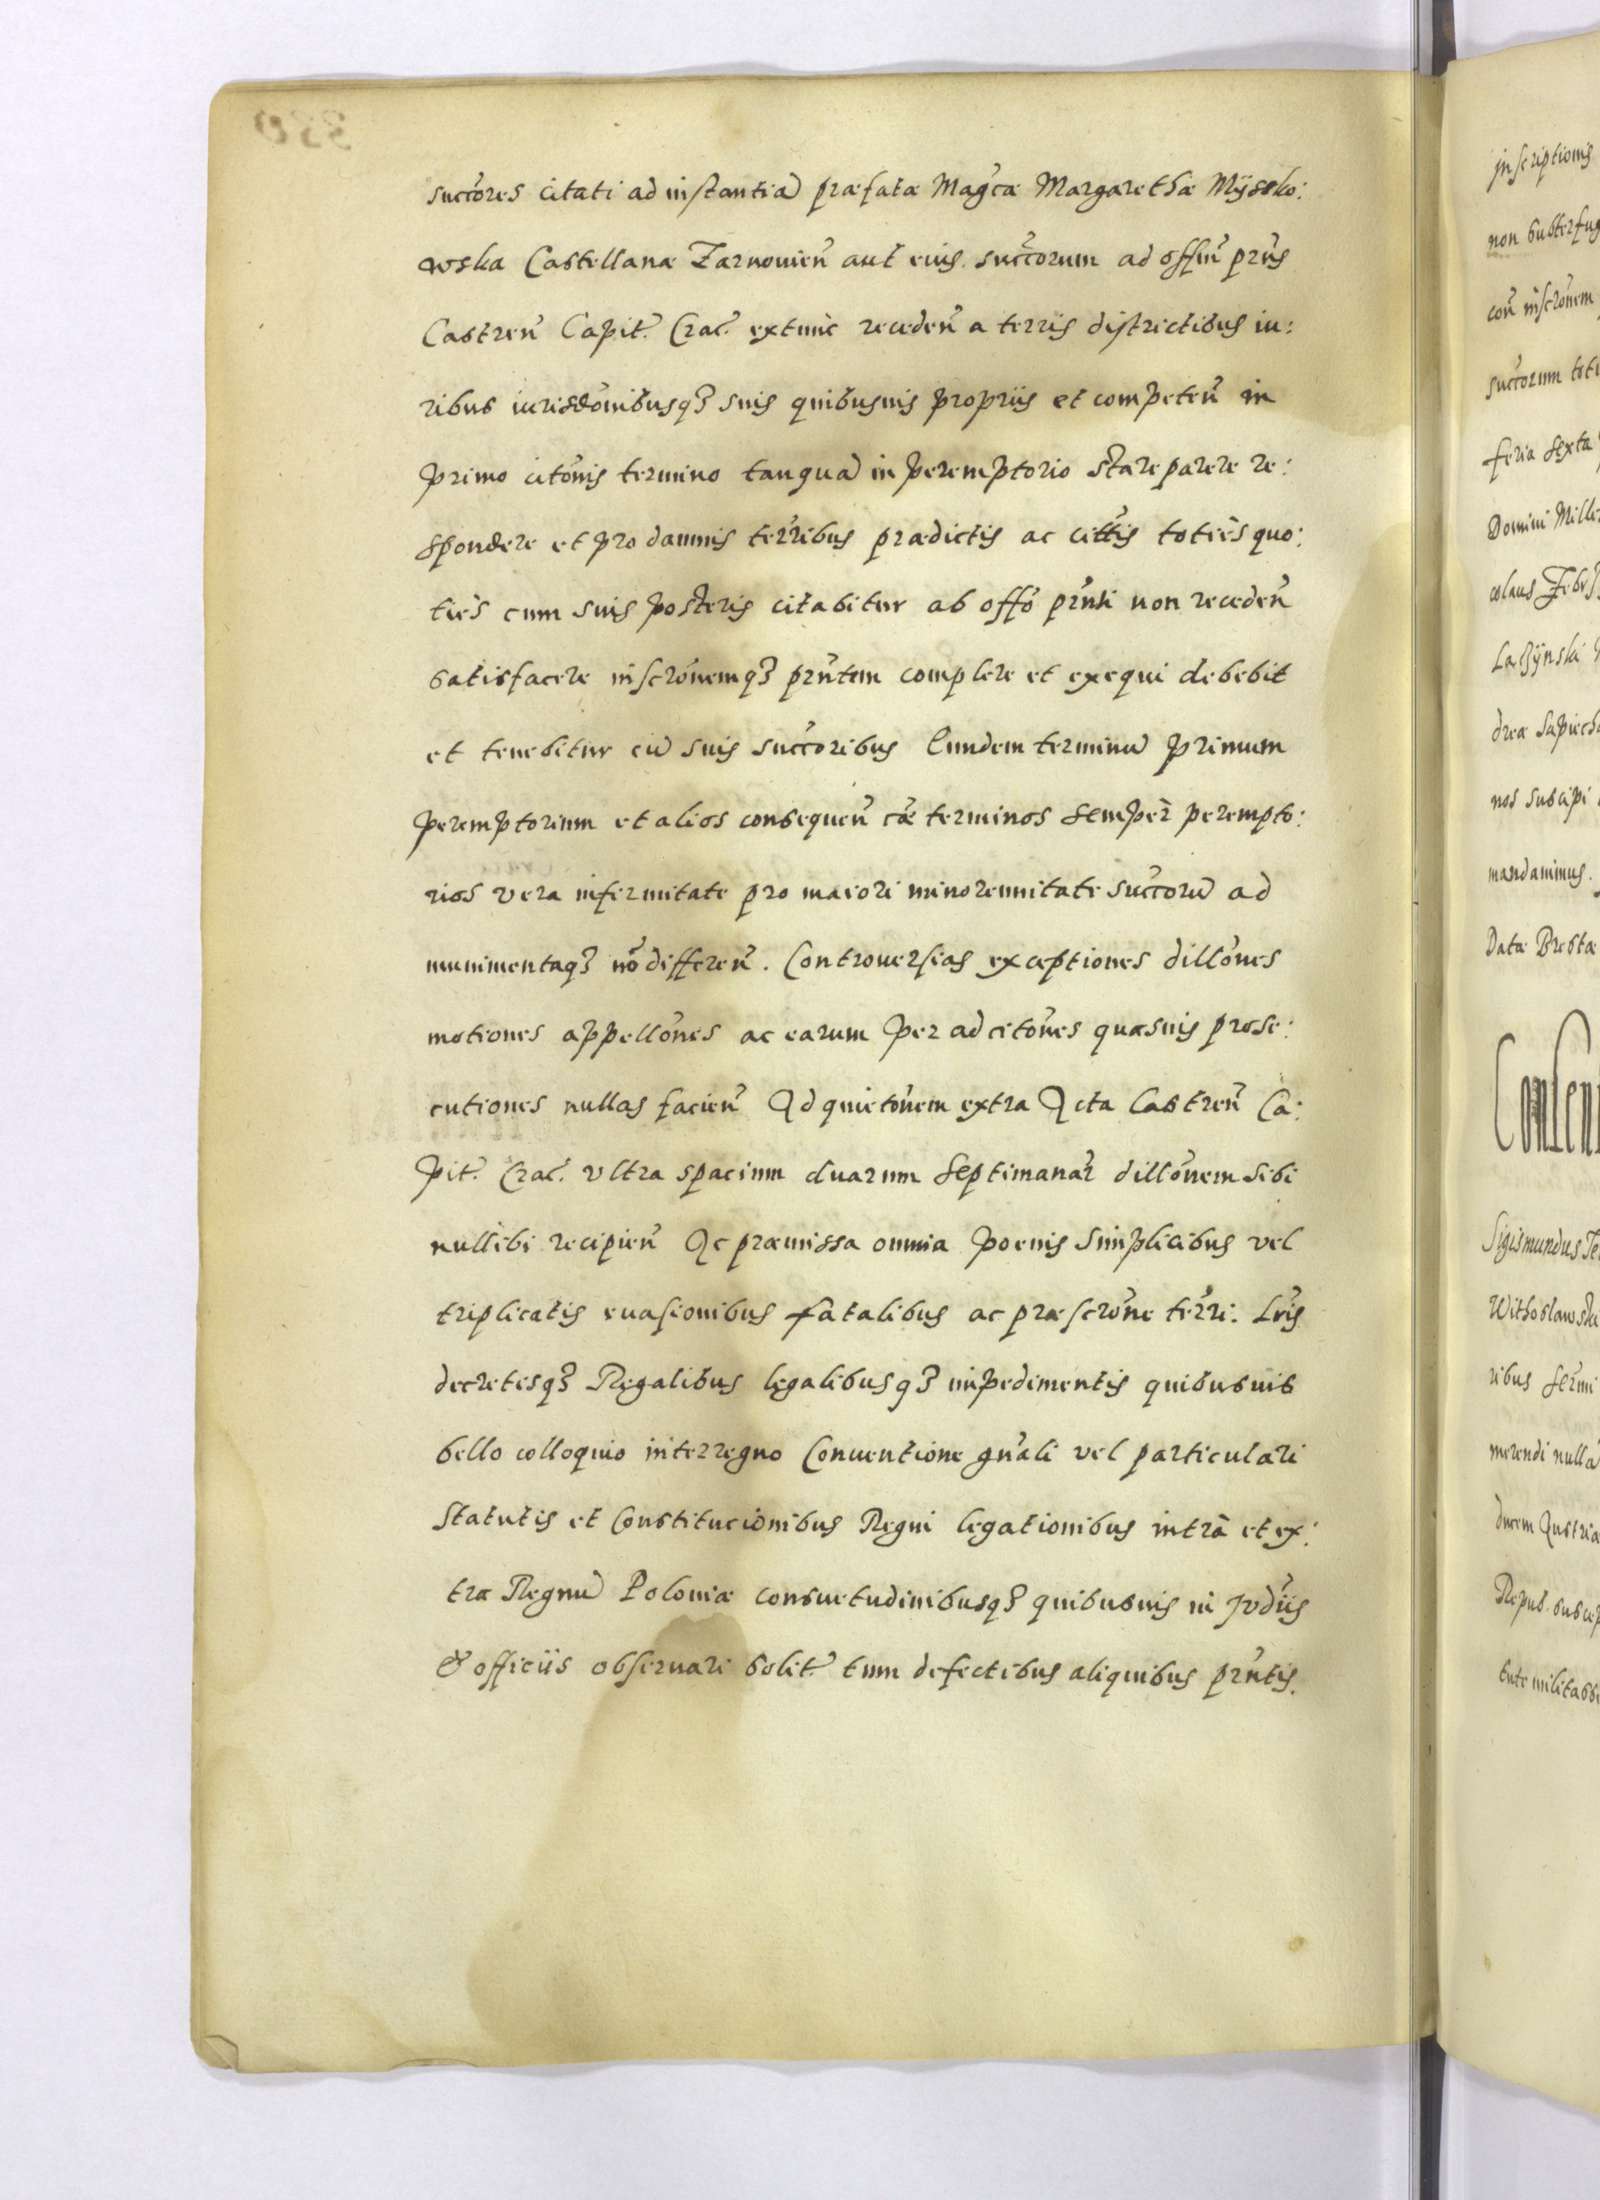 succōres citati ad instantiā præfatæ Magcæ Margarethæ Mÿssko:
wska Castellanæ Żarnouien̄ aut eius succorum ad offm̄ prn̄s
Castren̄ Capit. Crac̄. extunc receden̄ a terris districtibus iu:
ribus iurisdōnibusq3 suis quibusuis proprijs et competen̄ in
primo citōnis termino tanquā in peremptorio stare parere re:
spondere et pro damnis terr̄ibus prædictis ac cittīs totiès quo:
tiès cum suis posteris citabitur ab offō prn̄ti non receden̄
satisfacere inscrōnemq3 prn̄tem complere et exequi debebit
et tenebitur cū suis succoribus Eundem terminū primum
peremptorium et alios consequen̄ cæ terminos semper perempto:
rios vera infirmitate pro maiori minorennitate succorū ad
munimentaq3 nō differen̄. Controuersias exceptiones dillōnes
motiones appellōnes ac earum per adcitōnes quasuis prose:
cutiones nullas facien̄ Ad quietōnem extra Acta Castren̄ Ca:
pit. Crac̄. vltra spacium duarum septimanar̄ dillōnem sibi
nullibi recipien̄ Ac præmissa omnia poenis simplicibus vel
triplicatis euasionibus fatalibus ac præscrōne terr̄i: Lr̄is
decretisq3 Regalibus legalibusq3 impedimentis quibusuis
bello colloquio interregno Conuentione gn̄ali vel particulari
statutis et Constitucionibus Regni legationibus intrà et ex:
tra Regnū Poloniæ consuetudinibusq3 quibusuis in Jud̄ijs
& officijs obseruari solit. tum defectibus aliquibus prn̄tis.
inscriptionis
non subterfug
con̄ inscrōnem
succorum toti
feria sexta
Domini Mille
dreæ Sapieha
nos suscipi
mandauimus.
Datæ Brestæ
Consen
Sigismundus Te
Withoslawski
ribus
merendi nullā
ducem Austria
Repub. suscep
tute militasse